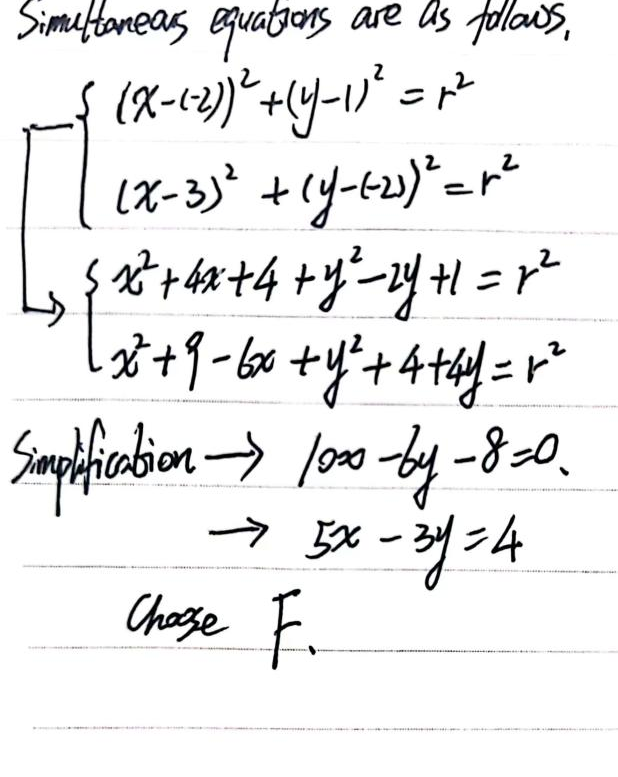 Simultaneous equations are as follows,
(x-(-2))² + (y-1)² = r²
(x-3)² + (y-(-2))² = r²
x² + 4x + 4 + y² - 2y + 1 = r²
x² + 9 - 6x + y² + 4 + 4y = r²
Simplification → 10x - 6y - 8 = 0.
→ 5x - 3y = 4
Choose F.